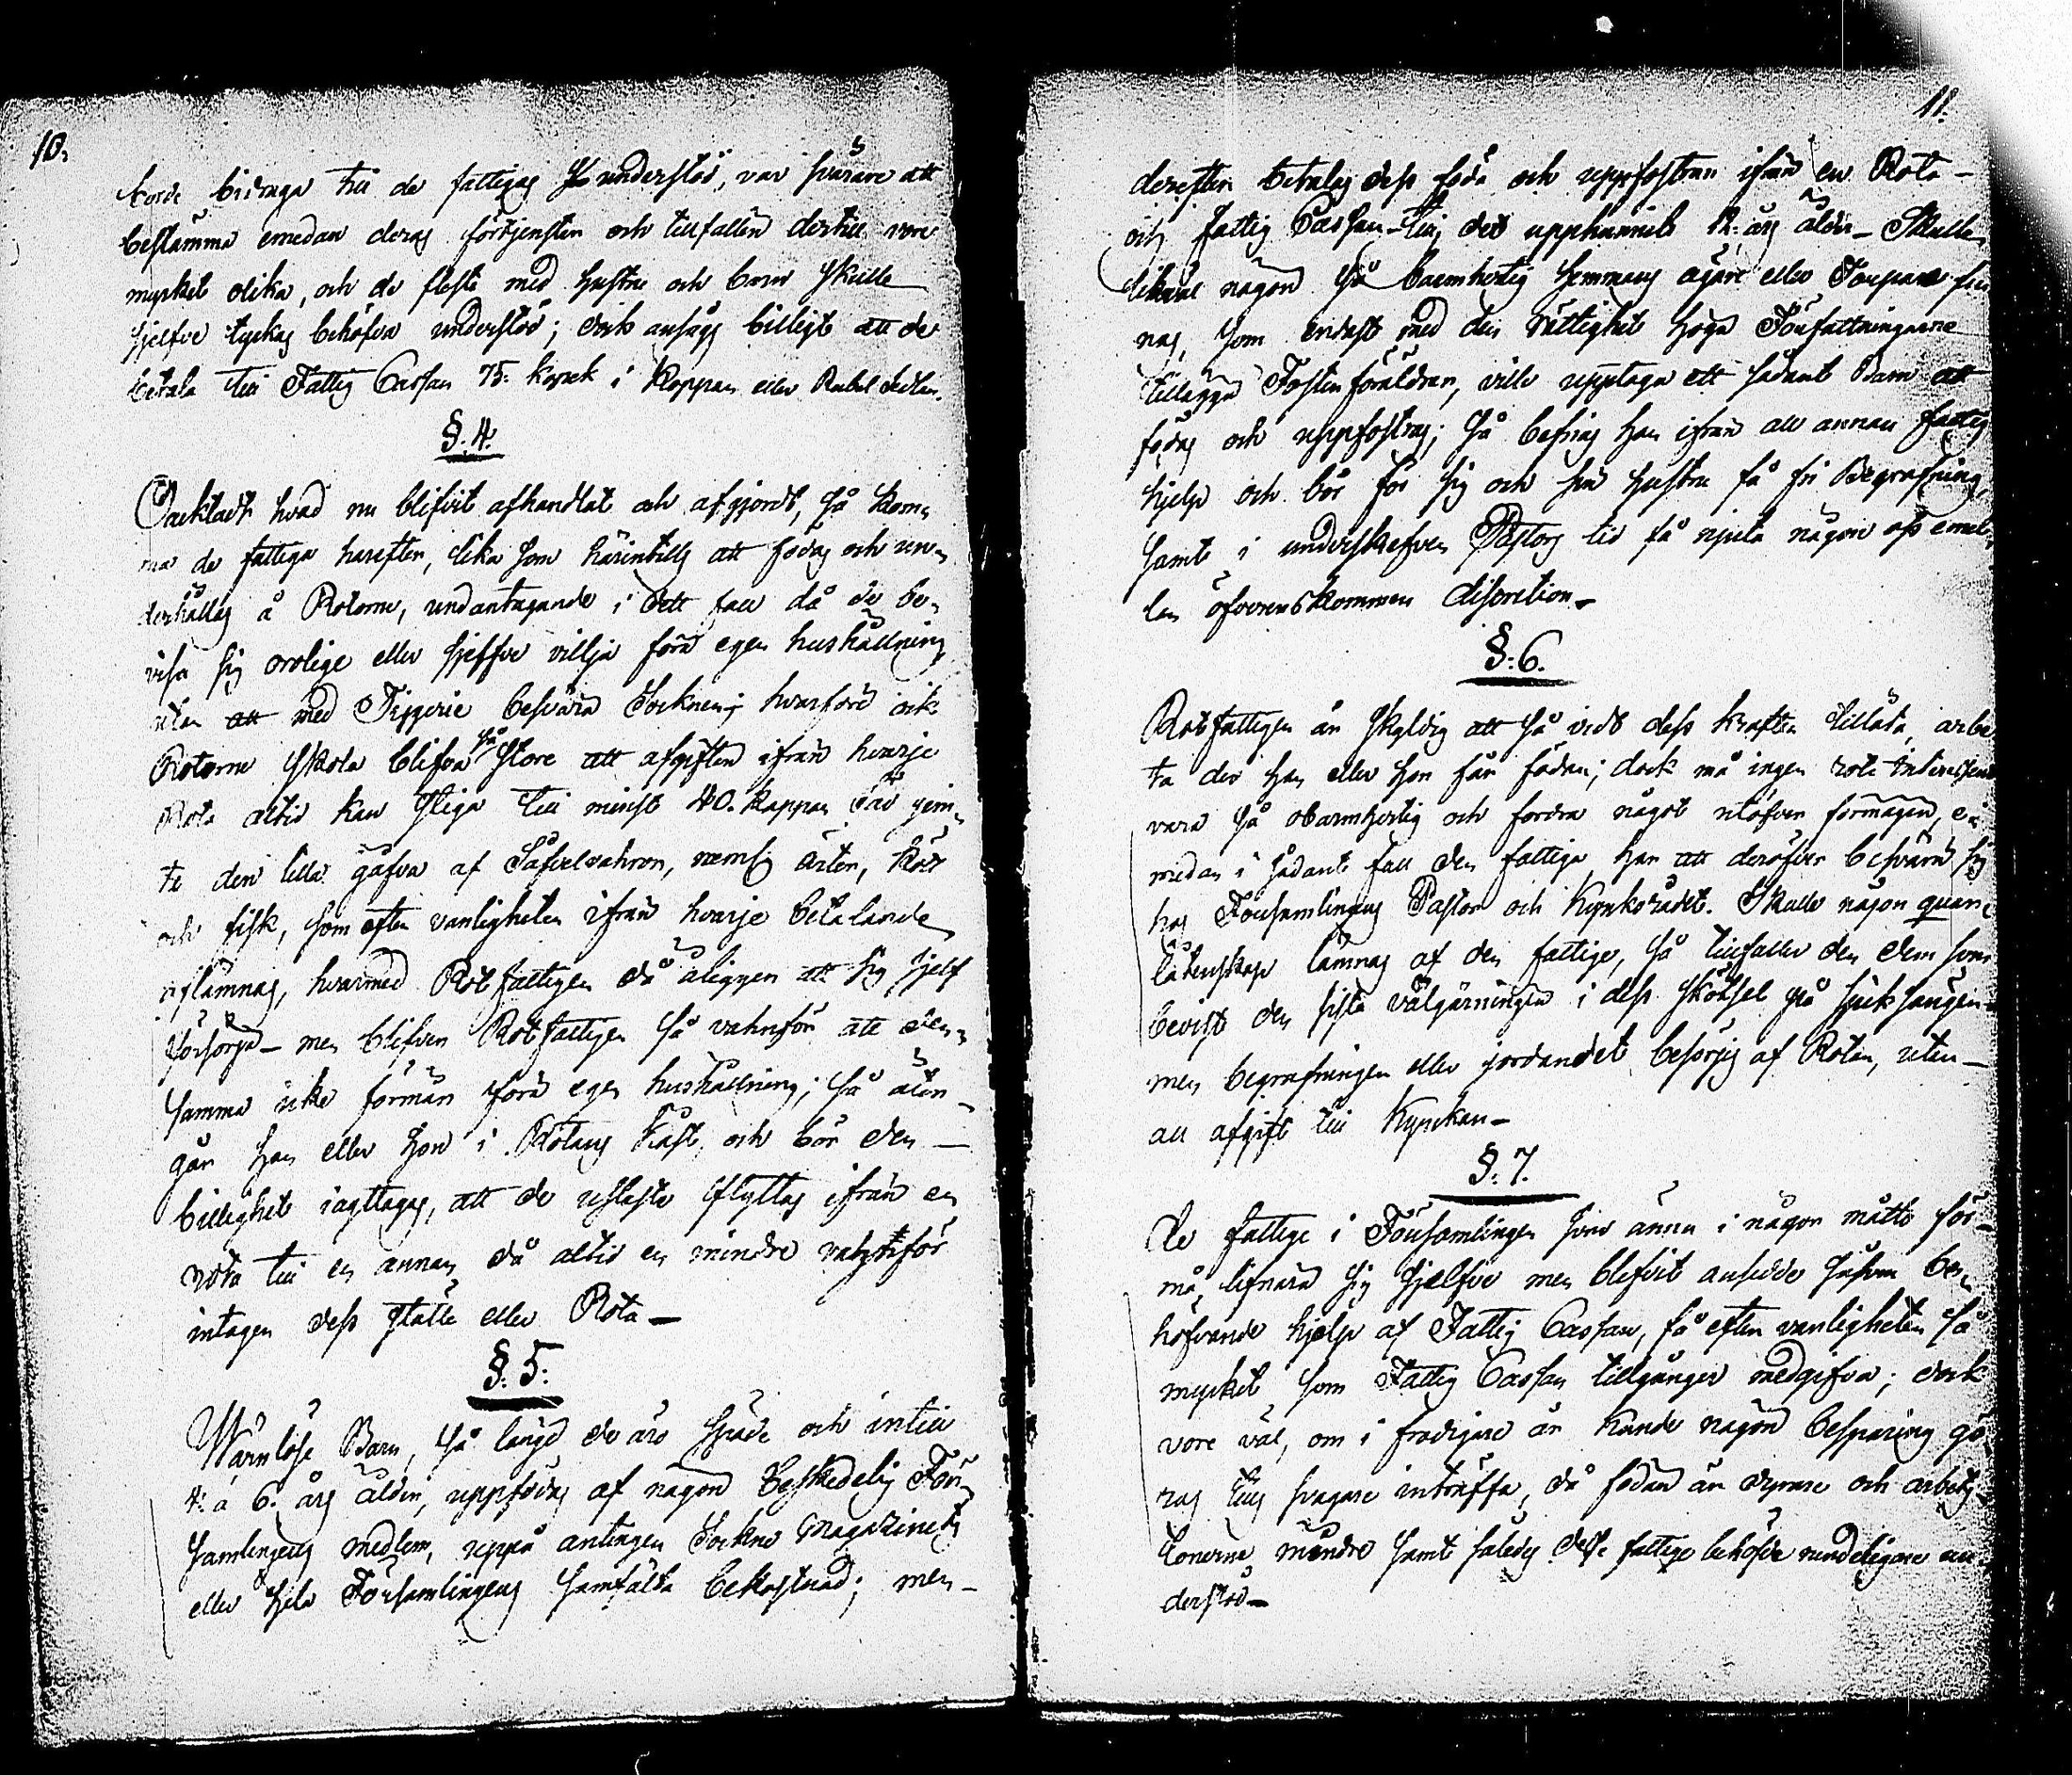 10.
borde bidraga till de fattigas understöd, var svårare att
bestämma emedan deras förtjenster och tillfällen dertill vore
mycket olika, och de fleste med hustru och barn skulle
sjelfve tyckas behöfva understöd; dock ansågs billigt att de
betala till Fattig Cassan 75. kopek i Koppar eller Rubel Sedlar.
§. 4.
Oacktadt hvad nu blifvit afhandlat och afgjordt, så kom-
ma de fattiga härefter, lika som härintills att födas och un-
derhållas å Rotorne, undantagande i dett fall då de be-
visa sig orolige eller sjelfve villja föra egen hushållning
utan att med Tiggerie besvära Socknen; hvarföre ock
Rotorne skola blifva så store att afgiften ifrån hvarje
Rota altid kan stiga till minst 40. kappar Säd jem-
te den lilla gåfva af Såfvelvahror, nemlig ärter, kött
och fisk, som efter vanligheten ifrån hvarje betalande
aflämnas, hvarmed Rotfattigen då åligger att sig sjelf
försörja - men blifver Rotfattigen så vahnför att den-
samma icke förmår föra egen hushållning; så åter-
går han eller hon i Rotans kost, och bör den
billighet iagttagas, att de uslaste flyttas ifrån en
rota till en annan, då altid en mindre vahnför
intager dess ställe eller Rota -
§. 5.
Wärnlöse Barn, så länge de äro späde och intill
4. a 6. års ålder, uppfödas af någon beskedelig För-
samlingens medlem, uppå antingen Sockne Magazinets
eller hela Församlingens samfälta bekostnad; men -
11.
derefter betalas dess föda och uppfostran ifrån en Rota -
och Fattig Cassan till det upphunnit 12. års ålder - Skulle
likväl någon så barmhertig hemmans ägare eller Torpare fin-
nas, som endast med den rättighet höga Författningarne
tillägga Fosterföräldrar, ville upptaga ett sådant Barn att
födas och uppfostras; så befrias han ifrån all annan fattig
hjelp och bör för sig och sin hustru få fri Begrafning,
samt i underskrefven Pastors tid få njuta någon oss emel-
lan öfverenskommen discretion -
§. 6.
Rotfattigen är skyldig att så vidt dess krafter tillåta, arbe
ta der han eller hon får födan; dock må ingen rote interessent
vara så obarmhertig och fordra något utöfver förmågan, e-
medan i sådant fall den fattige har att deröfver besvära sig
hos Församlingens Pastor och Kyrkorådet. Skulle någon quar-
låtenskap lämnas af den fattige, så tillfaller den dem som
bevist den sista välgärningen i dess skötsel på sjuksängen -
men begrafningen eller jordandet besörjes af Rotan, utan -
all afgift till Kyrckan -
§. 7.
De fattige i Församlingen som ännu i någon måtto för-
må lifnära sig sjelfve men blifvit ansedde såsom be-
höfvande hjelp af Fattig Cassan, få efter vanligheten så
mycket som Fattig Cassans tillgångar medgifva; dock
vore väl, om i frodigare år kunde någon besparing gö-
ras tills svagare inträffa, då födan är dyrare och arbets
lönerne mindre samt således desse fattige behöfde rundeligare un-
derstöd -